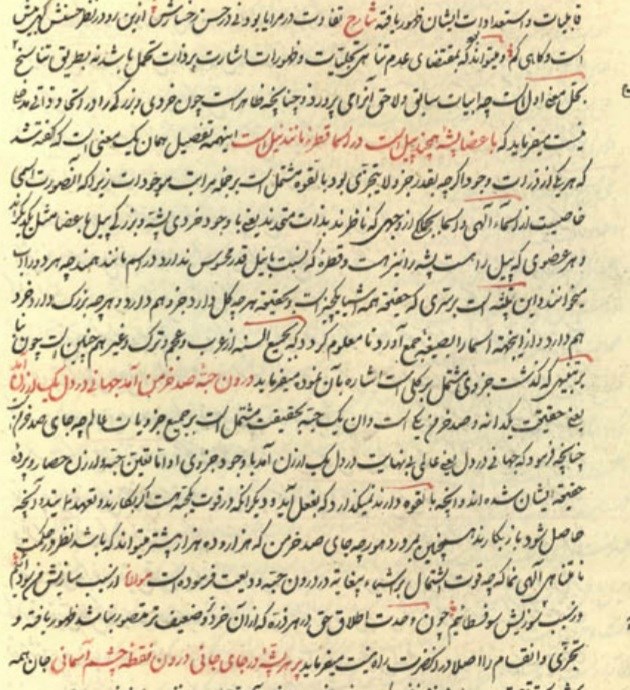 قابلیات و استعدادات ایشان ظهور یافته شارح تفاوت در مرایا بود نی در حسن
است و گاهی کم و میتواند که بمقتضای عدم تناهی تجلیات و ظهورات اشارت بر ذات تحمل باشد نه بطریق تناسخ
معنی اول است چه ابیات سابق و لاحق آنرا می پرورد و چنانچه ظاهر است چون خردی و بزرگی را در
نیست میفرماید که باعضا پشه همچند پیل است در اسما قطره مانند نیل است اینهمه تفصیل همان یک معنی است که گفته شد
که هر یکی از ذرات وجود اگرچه بقدر جزو لا یتجزی بود بالقوه مشتمل است بر جمله مراتب موجودات زیرا که
خاصیت از اسماء الهی و اسما از وجهی که ناظرند بذات متحدند یعنی با وجود خردی پشه و بزرگی پیل باعضا مثل
و هر عضوی که پیل را هست پشه را نیز هست و قطره که نسبت با نیل قدر محسوس ندارد در اسم مانند همند چه هر دو را آب
میخوانند این نکته است بر سری که حقیقت همه اشیا یکیست و بحقیقت هرچه کل دارد جزو هم دارد و هرچه بزرگ دارد خرد
هم دارد و ازینجهت اسما را بصیغه جمع آورد تا معلوم گردد که بجمیع السنه از عرب و عجم و ترک و غیر هم چنین است چون
که گذشت جزوی مشتمل بر کلی است اشاره بآن نموده میفرماید درون حبه صد خرمن آمد جهانی در دل یک ارزن آمد
یعنی حقیقت یکدانه و صد خرمن یکی است و آن یک حبه بحقیقت مشتمل است بر جمیع جزویات عالم چه جای صد خرمن
چنانچه فرمود که جهانی در دل یعنی عالمی بی نهایت در دل یک ارزن آمد با وجود خردی او اما تعین حبه و ارزن حصار و پرده
حقیقت ایشان شده اند و آنچه بالقوه دارند نمیگذارد که بفعل آید و دیگر آنکه در قوت یک حبه هست اگر بکارند و تعهد نمایند و آنچه
حاصل شود باز بکارند همچنین بمرور دهور چه جای صد خرمن که هزار و ده هزار بیشتر میتواند که باشد نظر در حکمت
نامتناهی الهی نما که چه قوت اشتمال بر اشیاء بیغایه در درون حبه ودیعت فرموده است مولانا در سبب سازیش من
در سبب سوزیش سوفسطائیم چون وحدت اطلاق حق در هر ذره که از آن خردتر و ضعیف تر متصور نباشد ظهور یافته و
تجزی و انقسام را اصلا در آنحضرت راه نیست میفرماید بر پر پشه در جای جانی درون نقطه چشم آسمانی جان همه